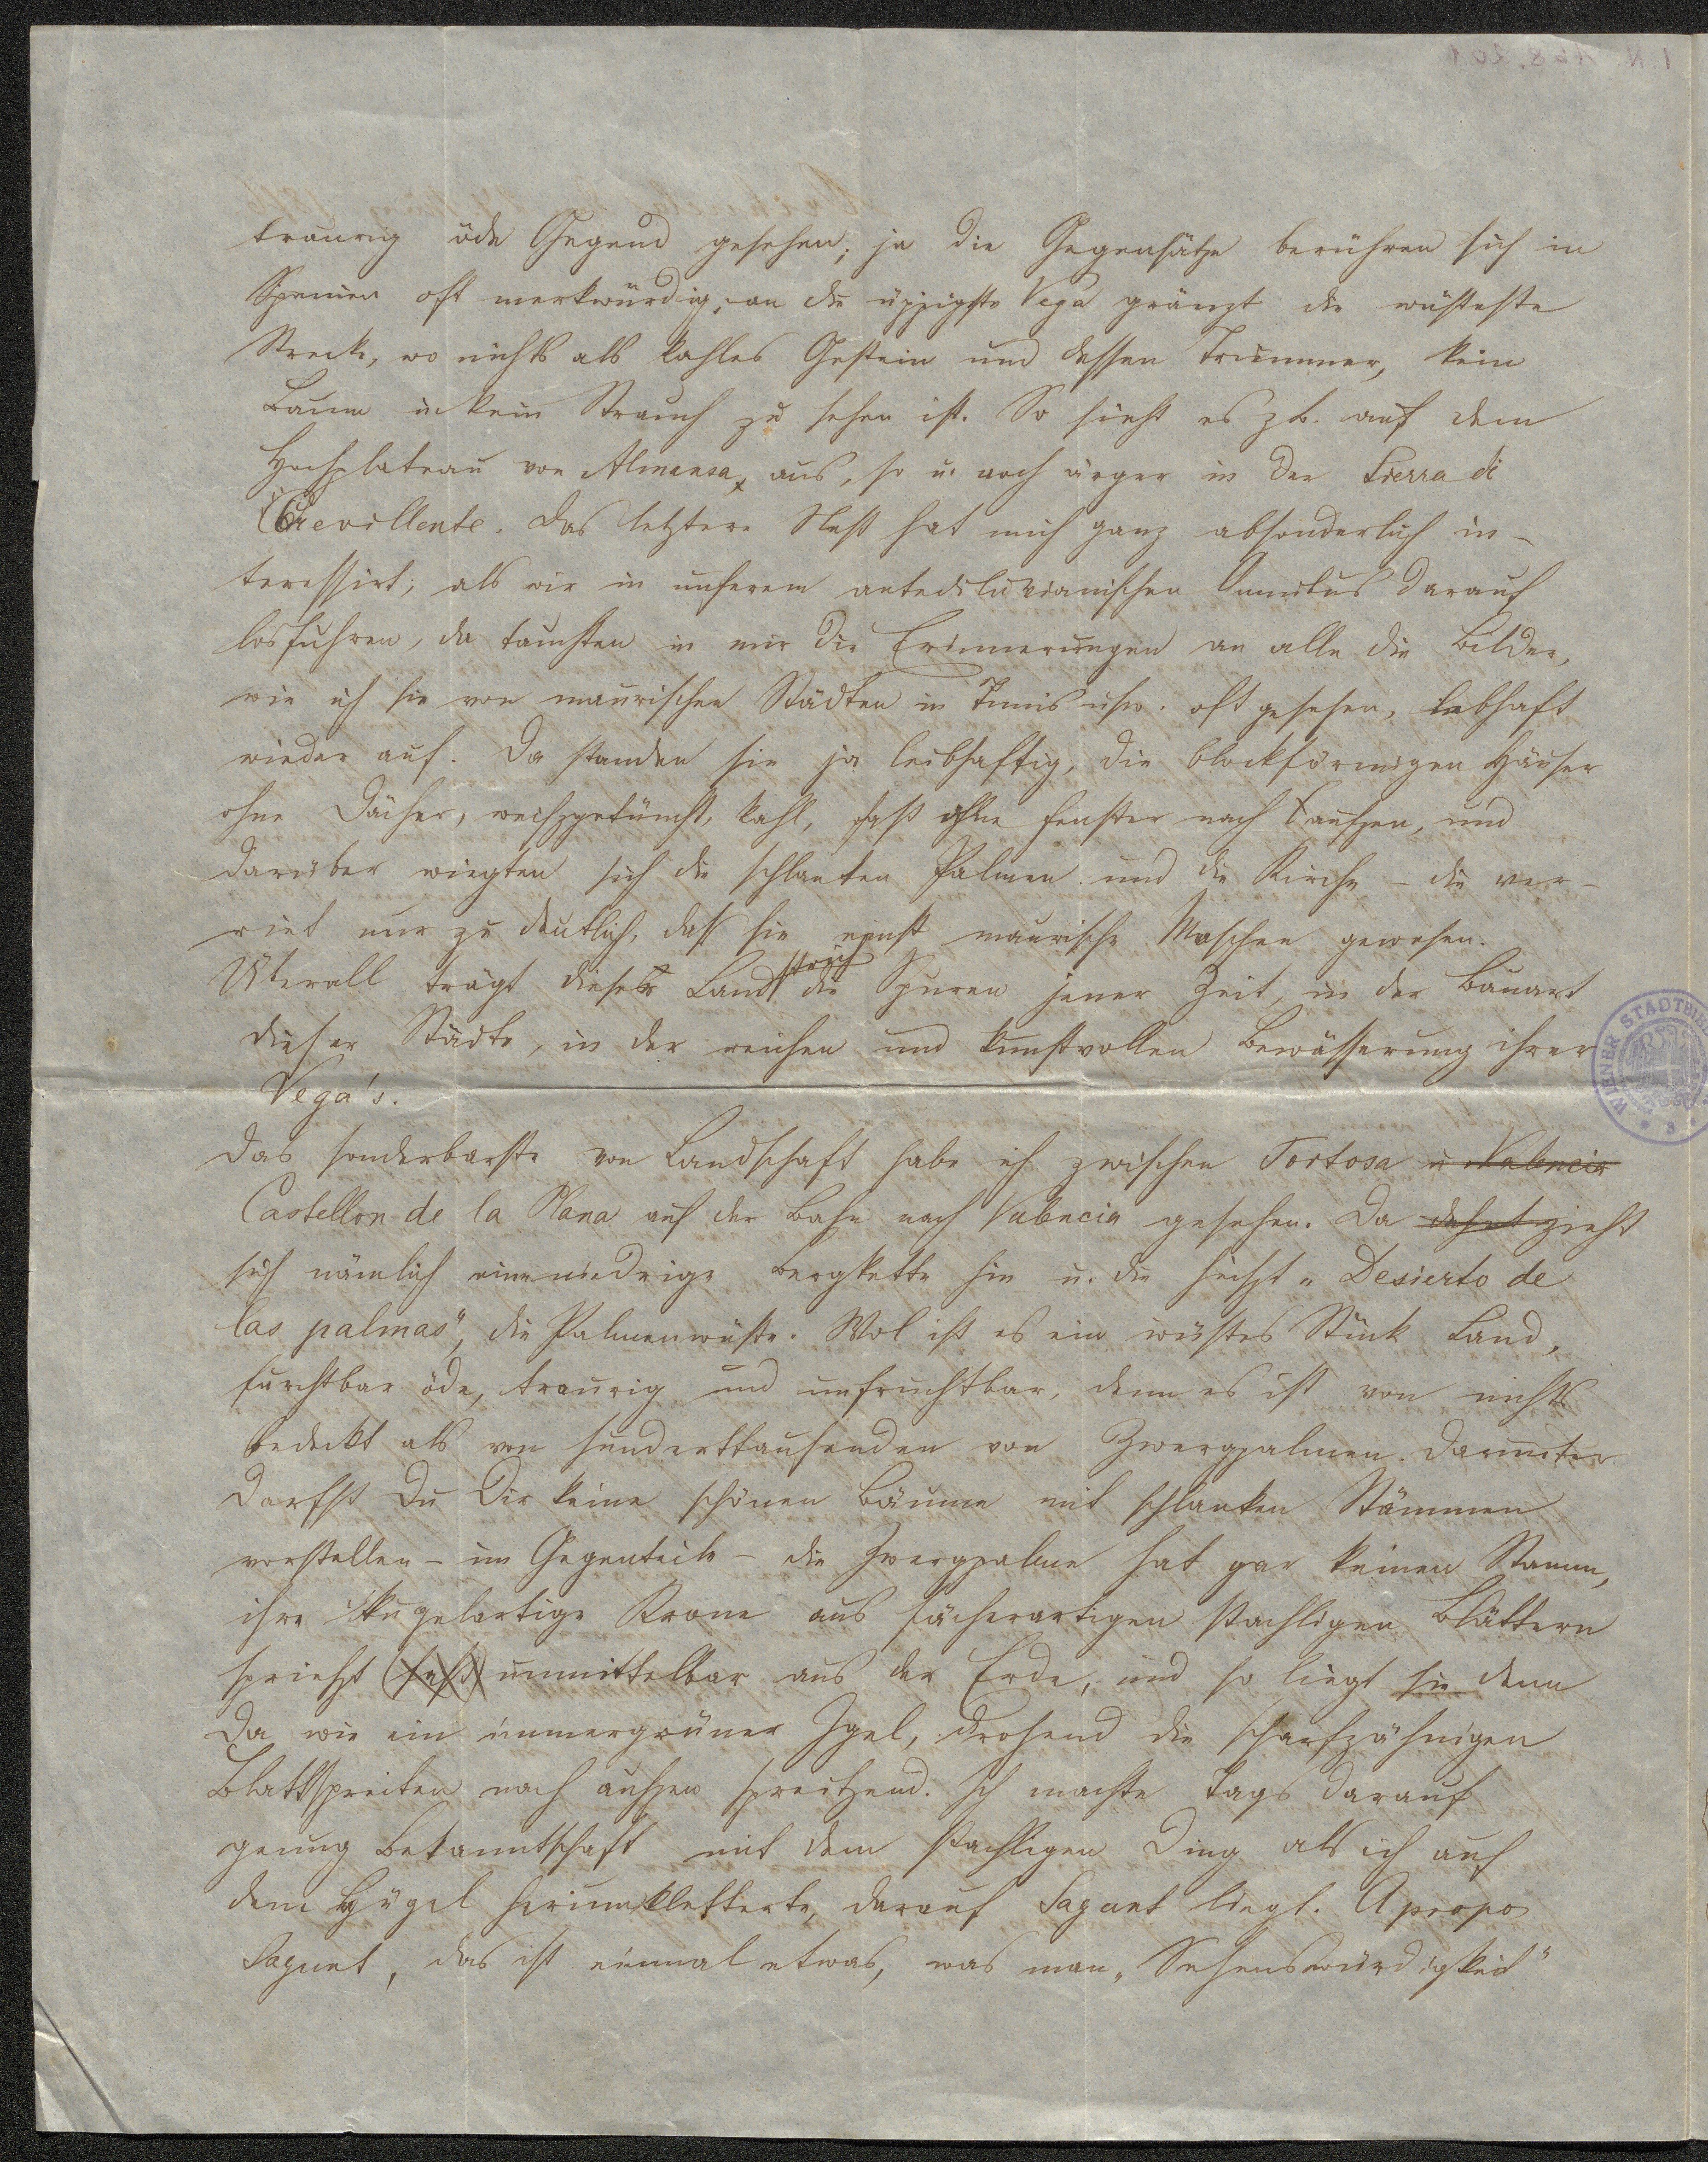 traurig öde Gegend gesehen; ja die Gegensätze berühren sich in
Spanien oft merkwürdig; an die üppigste Vega gränzt die wüsteste
Strecke, wo nichts als kahles Gestein und dessen Trümmer, kein
Baum u kein Strauch zu sehen ist. So sieht es zb. auf dem
Hochplateau von Almansa aus, so u. noch ärger in der Sierra di
Crevillente. Das letztere Nest hat mich ganz absonderlich in-
teressirt; als wir in unserem antediluvianischen Omnibus darauf
losfuhren, da tauchten in mir die Erinnerungen an alle die Bilder,
wie ich sie von maurischen Städten in Tunis usw. oft gesehen, lebhaft
wieder auf. Da standen sie ja leibhaftig, die blockförmigen Häuser
ohne Dächer, weißgetüncht, kahl, fast ohne Fenster nach außen, und
darüber wiegten sich die schlanken Palmen und die Kirche – die ver-
riet nur zu deutlich, daß sie einst maurische Moschee gewesen.
Überall trägt dieser Landstrich die Spuren jener Zeit, in der Bauart
dieser Städte, in der reichen und kunstvollen Bewässerung ihrer
Vega's.
Das sonderbarste von Landschaft habe ich zwischen Tortosa u Valencia
Castellon de la Plana auf der Bahn nach Valencia gesehen. Da dehnt zieht
sich nämlich eine niedrige Bergkette hin u. die heißt „Desierto de
las palmas", die Palmenwüste. Wol ist es ein wüstes Stück Land,
furchtbar öde, traurig und unfruchtbar, denn es ist von nichts
bedeckt als von hunderttausenden von Zwergpalmen. Darunter
darfst Du Dir keine schönen Bäume mit schlanken Stämmen
vorstellen – im Gegenteile – die Zwergpalme hat gar keinen Stamm,
ihre kugelartige Krone aus fächerartigen stachligen Blättern
sprießt (fast) unmittelbar aus der Erde, und so liegt sie denn
da wie ein immergrüner Igel, drohend die scharfzähnigen
Blattspreiten nach außen spreitzend. Ich machte tags darauf
genug Bekanntschaft mit dem stachligen Ding als ich auf
dem Hügel herumkletterte, darauf Sagunt liegt. Apropos
Sagunt, das ist einmal etwas, was man „Sehenswürdigkeit"
WIENER STADTBI
3